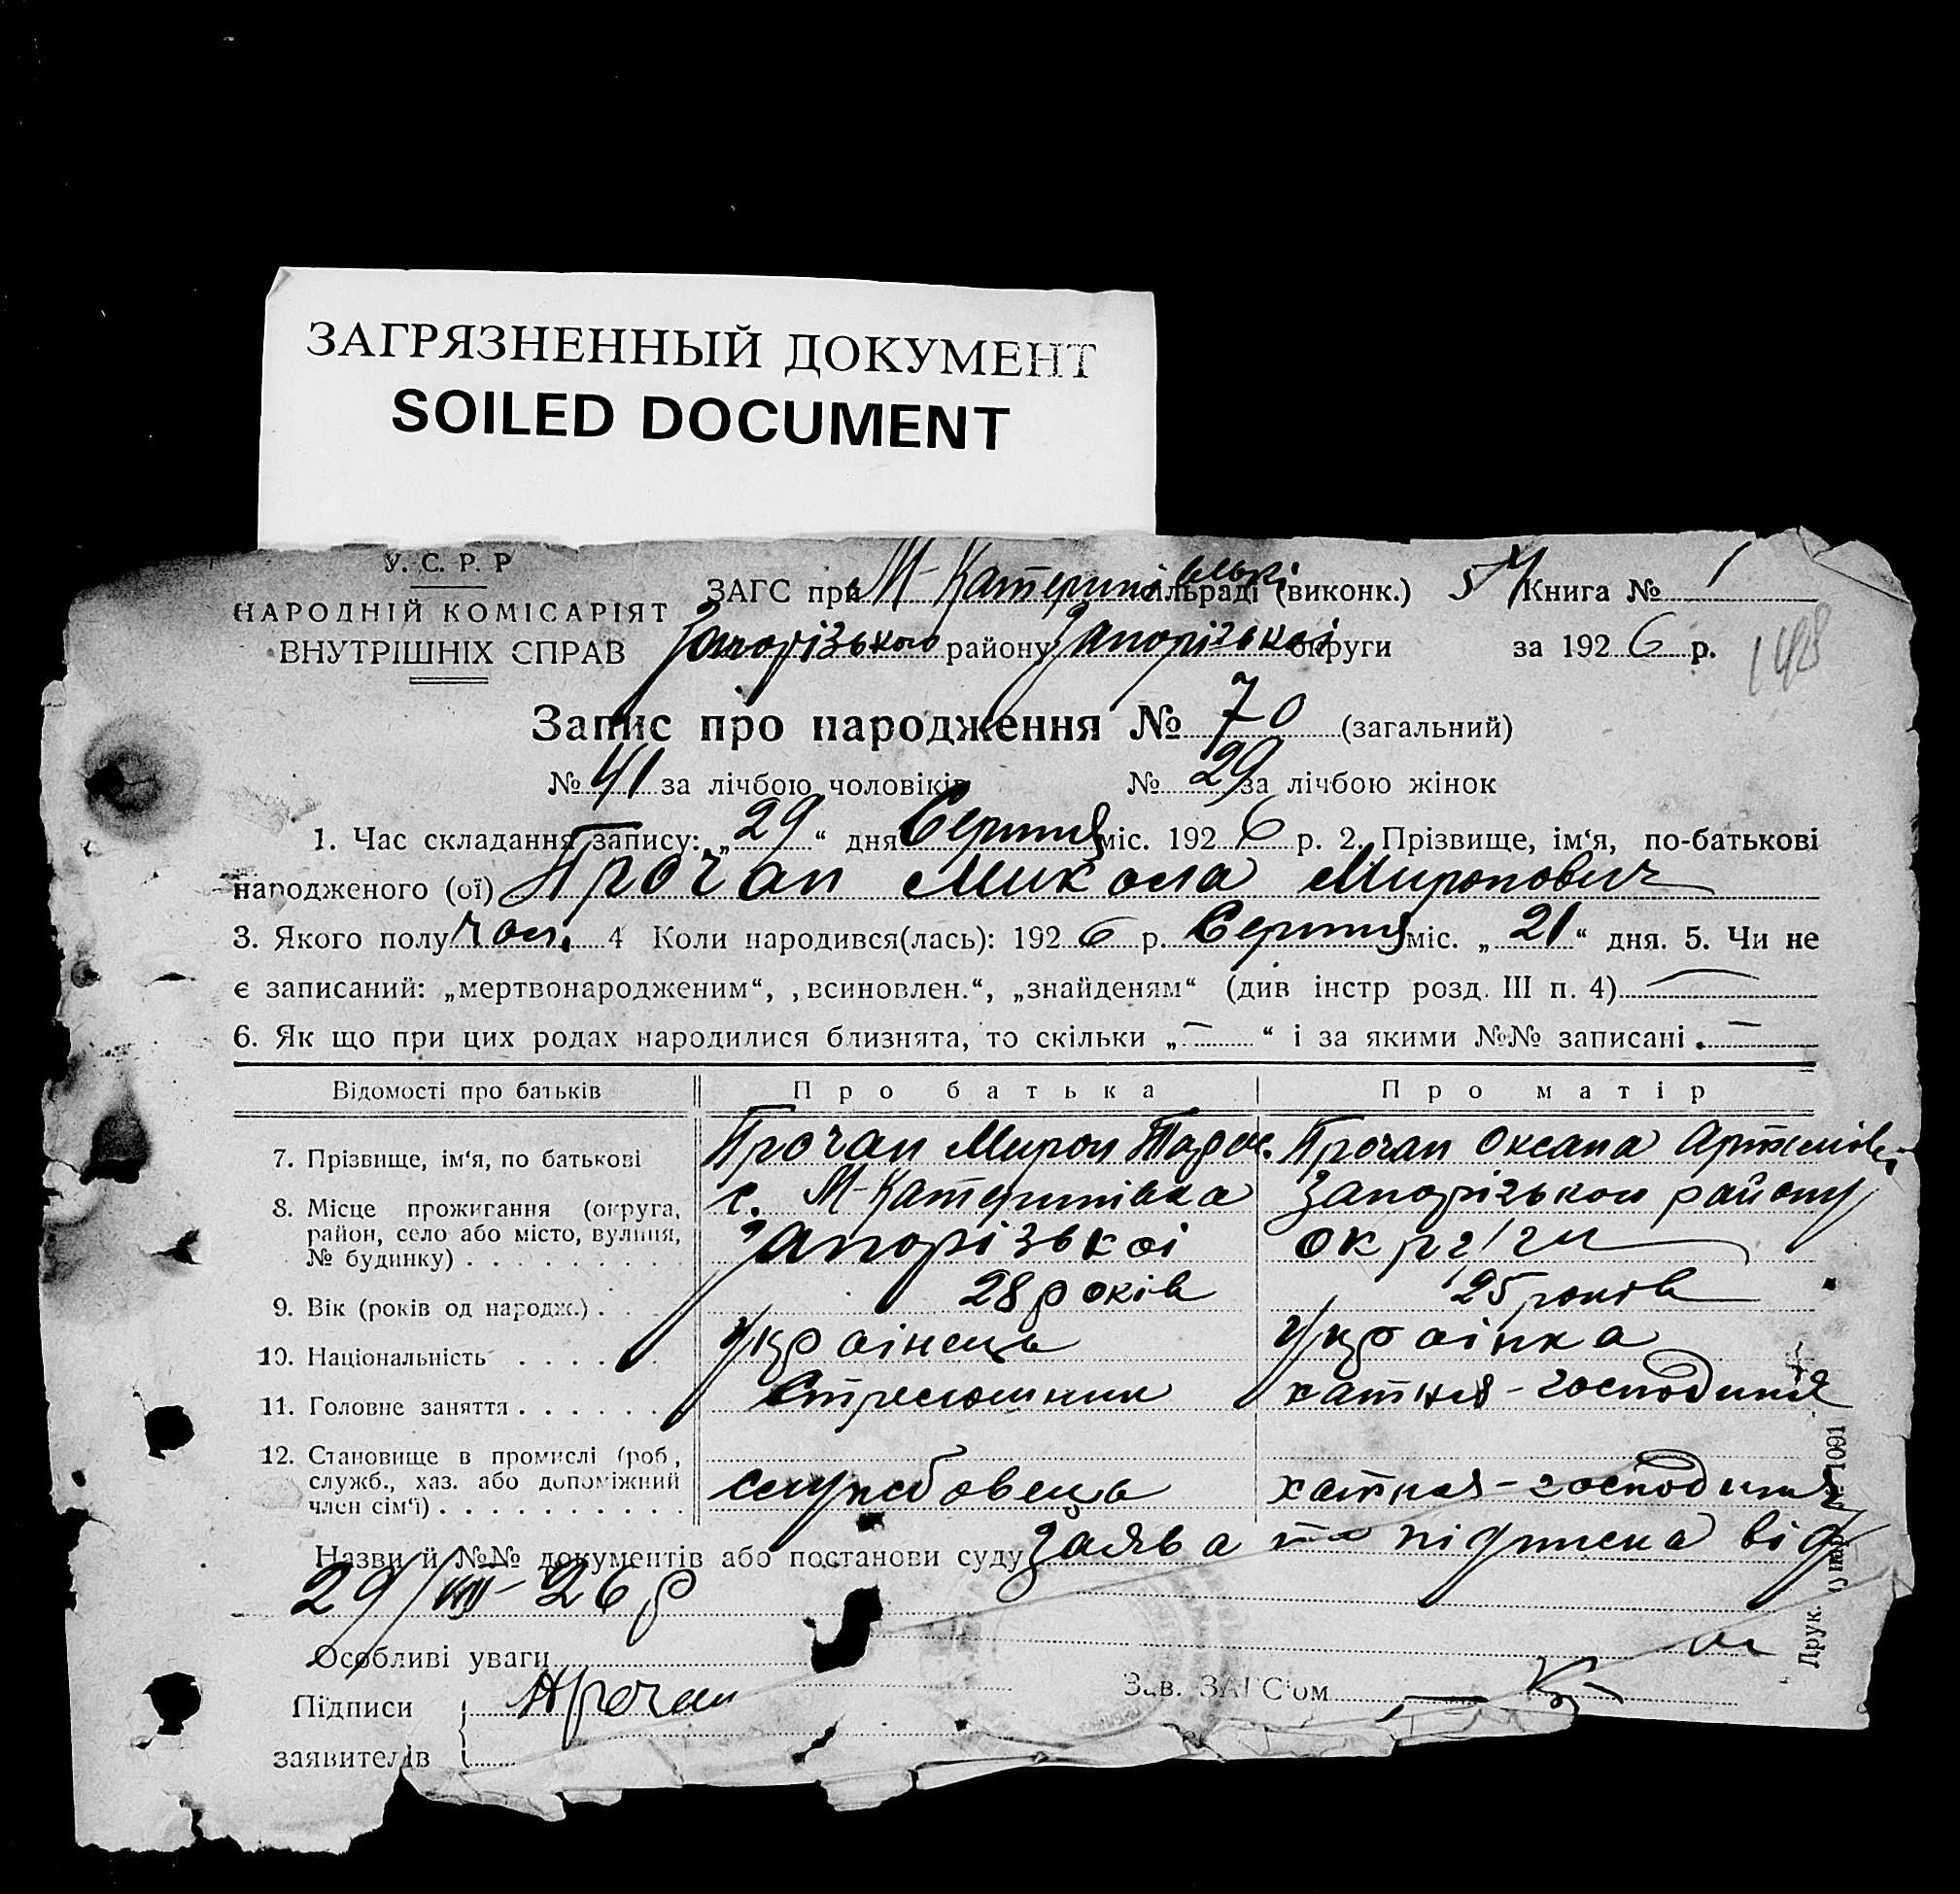 ЗАГРЯЗНЕННЫЙ ДОКУМЕНТ
SOILED DOCUMENT
У. С. Р. Р
НАРОДНІЙ КОМІСАРІЯТ
ВНУТРІШНІХ СПРАВ
ЗАГС при М-Катерині сільраді (виконк.) Книга № 1
Запорізького району Запорізької округи за 1926 р.
148
Запис про народження № 70 (загальний)
№ 41 за лічбою чоловіків № 29 за лічбою жінок
1. Час складання запису: „29“ дня Серпня міс. 1926 р. 2. Прізвище, ім‘я, по-батькові
народженого (ої) Прочан Микола Миронович
3. Якого полу чол. 4 Коли народився(лась): 1926 р. Серпня міс. „21“ дня. 5. Чи не
є записаний: „мертвонародженим“, „всиновлен.“, „знайденям“ (див інстр розд. III п. 4) —
6. Як що при цих родах народилися близнята, то скільки „—“ і за якими №№ записані —
Відомості про батьків Про батька Про матір
7. Прізвище, ім‘я, по батькові Прочан Мирон Прочан Оксана Артемів.
8. Місце прожигання (округа, район, село або місто, вулиця, № будинку) с. М-Катеринівка Запорізького району
Запорізької округи
9. Вік (років од народж.) 28 років 25 років
10. Національність Украінець Украінка
11. Головне заняття Стрелошник хатня-господиня
12. Становище в промислі (роб, служб., хаз. або допоміжний член сім‘ї) службовець хатня-господиня
Назви й №№ документів або постанови суду Заява та підписка від
29/VIII-26 р
Особливі уваги
Підписи заявителів Прочан
Зав. ЗАГС‘ом
Друк. 1091